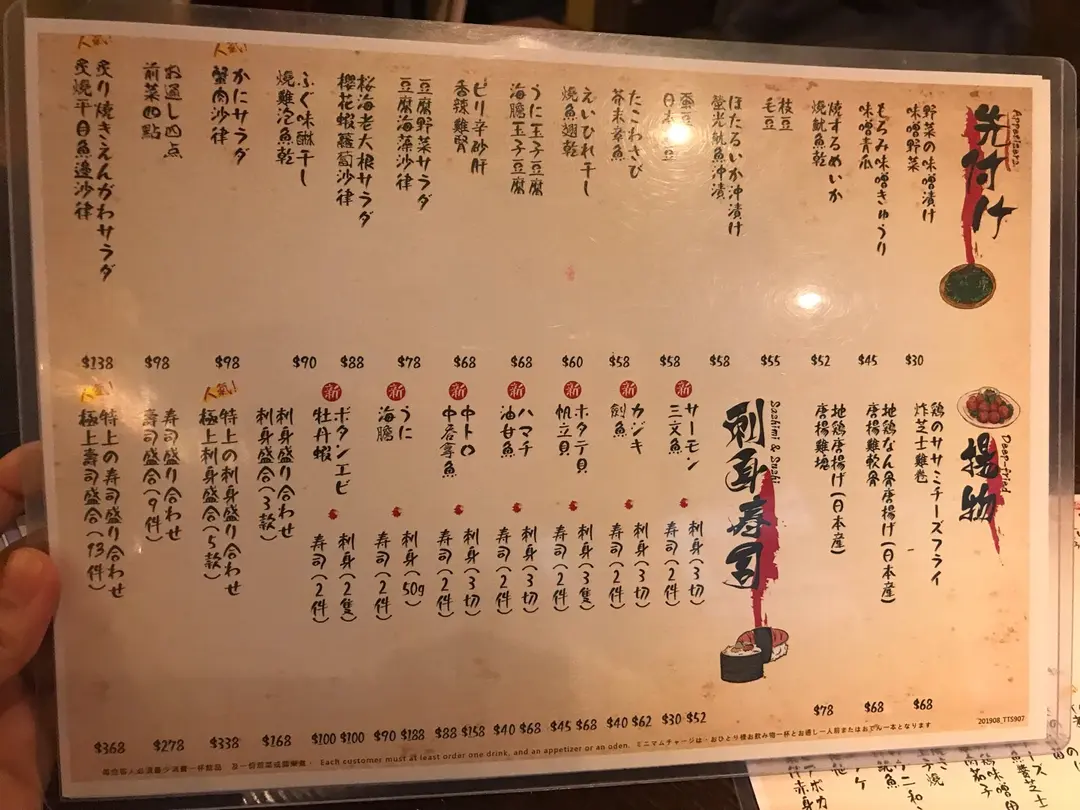 Appetisers
先付け
野菜の味噌漬け
味噌野菜
$30
もろみ味噌きゅうり
味噌青瓜
$45
焼するめいか
燒魷魚乾
$52
枝豆
毛豆
$55
ほたるいか沖漬け
螢光魷魚沖漬
$58
豆
日本 豆
$58
たこわさび
芥末章魚
$58
えいひれ干し
燒魚翅乾
$60
うに玉子豆腐
海膽玉子豆腐
$68
ピリ辛砂肝
香辣雞腎
$68
豆腐野菜サラダ
豆腐海藻沙律
$78
桜海老大根サラダ
櫻花蝦蘿蔔沙律
$88
ふぐ味醂干し
燒雞泡魚乾
$90
人氣!
かにサラダ
蟹肉沙律
$98
お通し四点
前菜四點
$98
人氣!
炙り焼きえんがわサラダ
炙燒平目魚邊沙律
$138
Deep-fried
揚物
鶏のササミチーズフライ
炸芝士雞卷
$68
地鶏なん骨唐揚げ(日本産)
唐揚雞軟骨
$68
地鶏唐揚げ(日本産)
唐揚雞塊
$78
Sashimi & Sushi
刺身寿司
新
サーモン
三文魚
刺身(3切)
寿司(2件)
$52
$30
新
カジキ
劍魚
刺身(3切)
寿司(2件)
$62
$40
新
ホタテ貝
帆立貝
刺身(3隻)
寿司(2件)
$68
$45
新
ハマチ
油甘魚
刺身(3切)
寿司(2件)
$68
$40
新
中トロ
中吞拿魚
刺身(3切)
寿司(2件)
$158
$88
新
うに
海膽
刺身(50g)
寿司(2件)
$188
$90
新
ボタンエビ
牡丹蝦
刺身(2隻)
寿司(2件)
$100
$100
刺身盛り合わせ
刺身盛合(3款)
$168
人氣!
特上の刺身盛り合わせ
極上刺身盛合(5款)
$338
寿司盛り合わせ
壽司盛合(9件)
$278
人氣!
特上の寿司盛り合わせ
極上壽司盛合(13件)
$368
201908_TTS907
每位客人必須最少消費一杯飲品 及一份前菜或關東煮 · Each customer must at least order one drink, and an appetizer or an oden. ミニマムチャージは・おひとり様お飲み物一杯とお通し一人前またはおでん一本となります